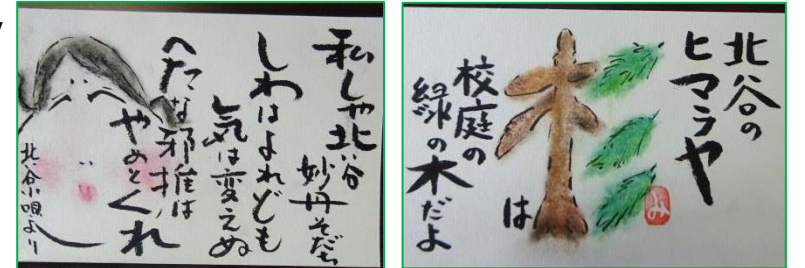 私しゃ北谷
妙丹そだち
しわはよれども
気は変えぬ
へたな邪推は
やめとくれ
北谷小唄より
北谷の
ヒマラヤ
杉は
校庭の
緑の木だよ
み